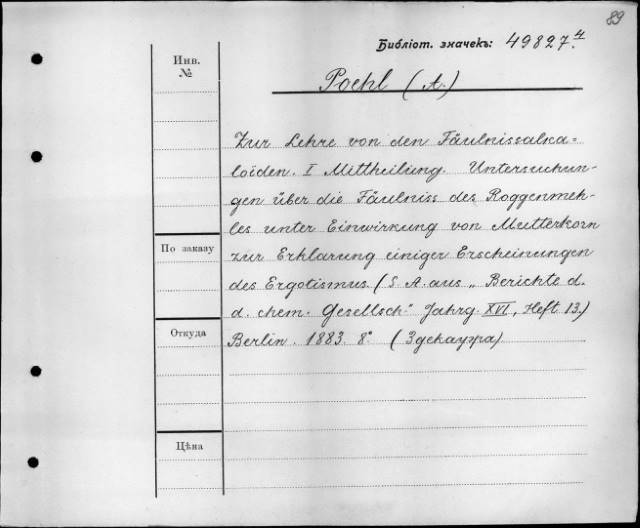 89
Библіот. значекъ: 49827 4.
Инв.
№
Poehl (A.)
Zur Lehre von den Fäulnissalka=
loiden. I Mittheilung. Untersuchun-
gen über die Fäulniss des Roggenmeh-
les unter Einwirkung von Mutterkorn
zur Erklärung einiger Erscheinungen
des Ergotismus. (S. A. aus „Berichte d.
d. chem. Gesellsch." Jahrg. XVI, Heft 13.)
Berlin. 1883. 8°.
По заказу
Откуда
Цѣна